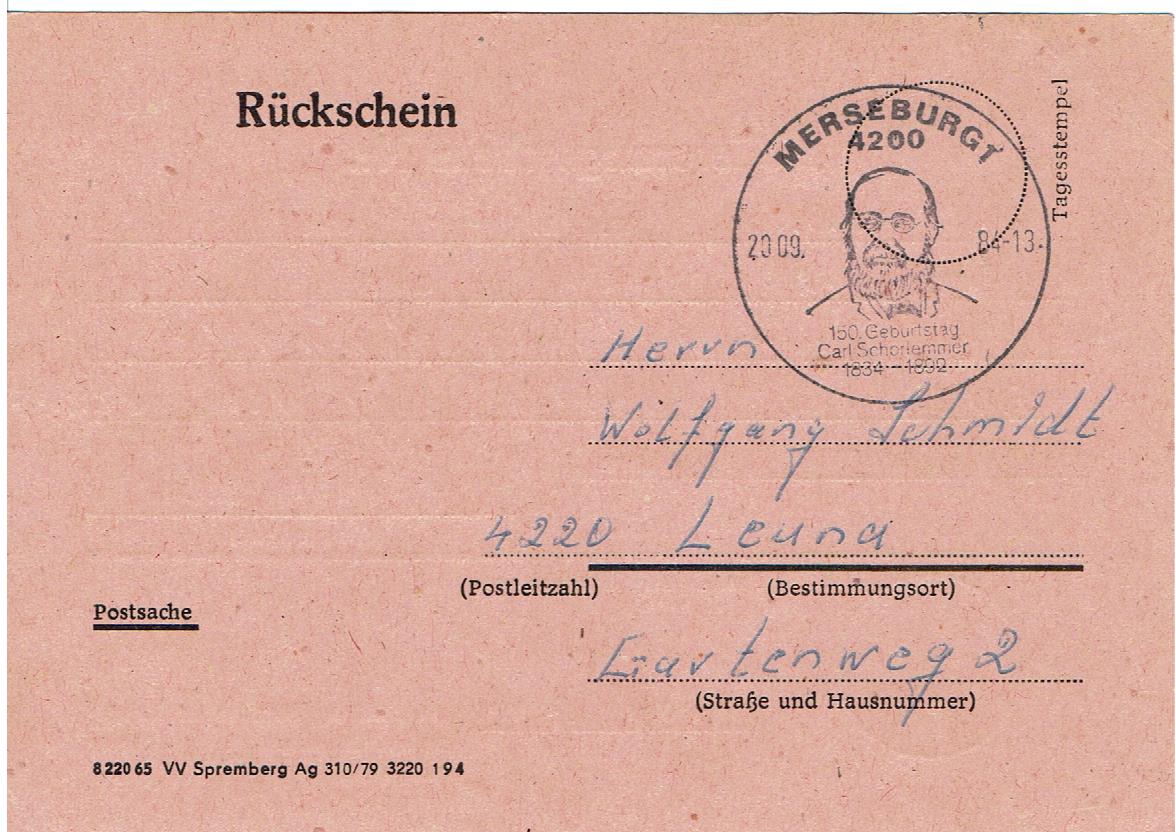 Rückschein
MERSEBURG 1
4200
20 09. 84-13.
150. Geburtstag
Carl Schorlemmer
1834 - 1892
Tagesstempel
Herrn
Wolfgang Schmidt
4220 Leuna
(Postleitzahl) (Bestimmungsort)
Postsache
Gartenweg 2
(Straße und Hausnummer)
822065 VV Spremberg Ag 310/79 3220 194